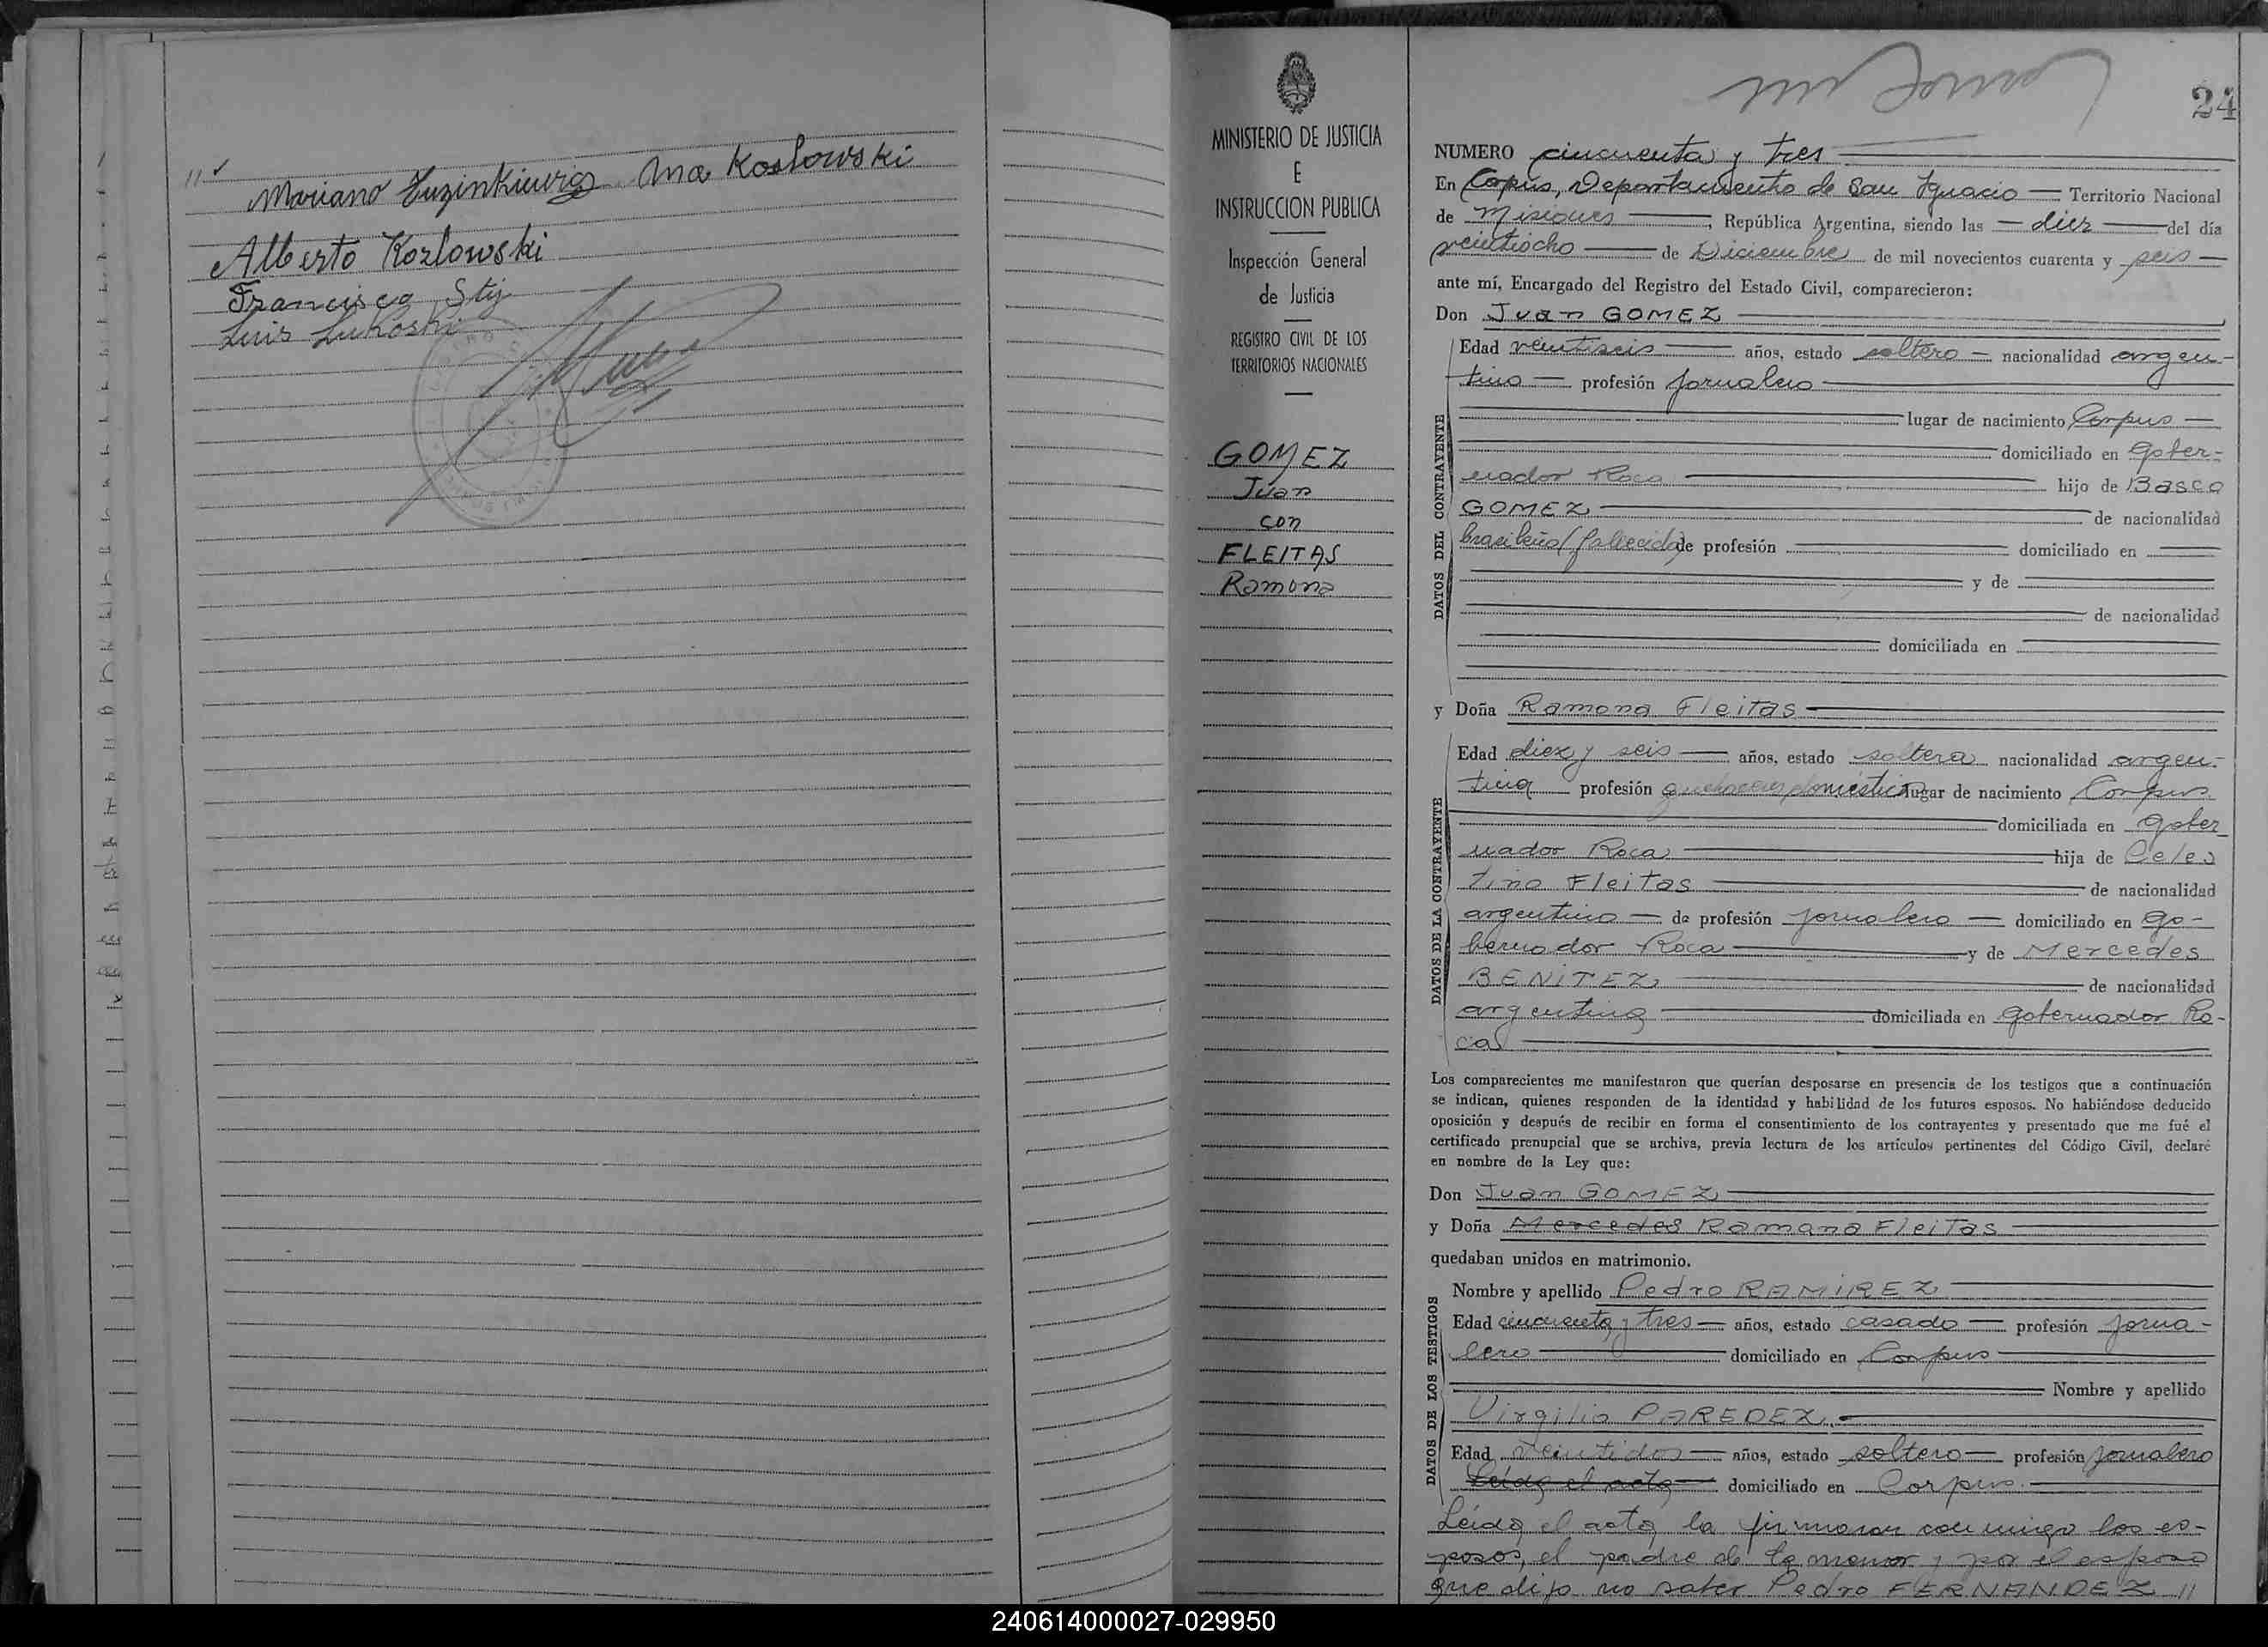 Mariano Ana Koslowski
Alberto Kozlowski
Francisco Stij
Luis Lukoski
MINISTERIO DE JUSTICIA
E
INSTRUCCION PUBLICA
Inspección General
de Justicia
REGISTRO CIVIL DE LOS
TERRITORIOS NACIONALES
GOMEZ
Juan
con
FLEITAS
Ramona
24
NUMERO cincuenta y tres
En Corpus, Departamento de San Ignacio Territorio Nacional
de Misiones, República Argentina, siendo las diez del día
veintiocho de Diciembre de mil novecientos cuarenta y seis
ante mí, Encargado del Registro del Estado Civil, comparecieron:
Don Juan GOMEZ
DATOS DEL CONTRAYENTE
Edad veintiseis años, estado soltero nacionalidad argen-
tino profesión jornalero
lugar de nacimiento Corpus
domiciliado en Gober-
nador Roca hijo de Basco
GOMEZ de nacionalidad
brasileño (fallecido) de profesión domiciliado en
y de
de nacionalidad
domiciliada en
y Doña Ramona Fleitas
DATOS DE LA CONTRAYENTE
Edad diez y seis años, estado soltera nacionalidad argen-
tina profesión quehaceres domésticos lugar de nacimiento Corpus
domiciliada en Gober
nador Roca hija de Celes
tino Fleitas de nacionalidad
argentino de profesión jornalero domiciliado en Go-
bernador Roca y de Mercedes
BENITEZ de nacionalidad
argentina domiciliada en Gobernador Ro-
ca
Los comparecientes me manifestaron que querían desposarse en presencia de los testigos que a continuación
se indican, quienes responden de la identidad y habilidad de los futuros esposos. No habiéndose deducido
oposición y después de recibir en forma el consentimiento de los contrayentes y presentado que me fué el
certificado prenupcial que se archiva, previa lectura de los artículos pertinentes del Código Civil, declaré
en nombre de la Ley que:
Don Juan GOMEZ
y Doña Mercedes Ramona Fleitas
quedaban unidos en matrimonio.
DATOS DE LOS TESTIGOS
Nombre y apellido Pedro RAMIREZ
Edad cincuenta y tres años, estado casado profesión jorna-
lero domiciliado en Corpus
Nombre y apellido
Virgilio PAREDEZ
Edad veintidos años, estado soltero profesión jornalero
Leida el acta domiciliado en Corpus
Leida el acta la firmaron conmigo los es-
posos, el padre de la menor y por el esposo
que dijo no saber Pedro FERNANDEZ //
240614000027-029950